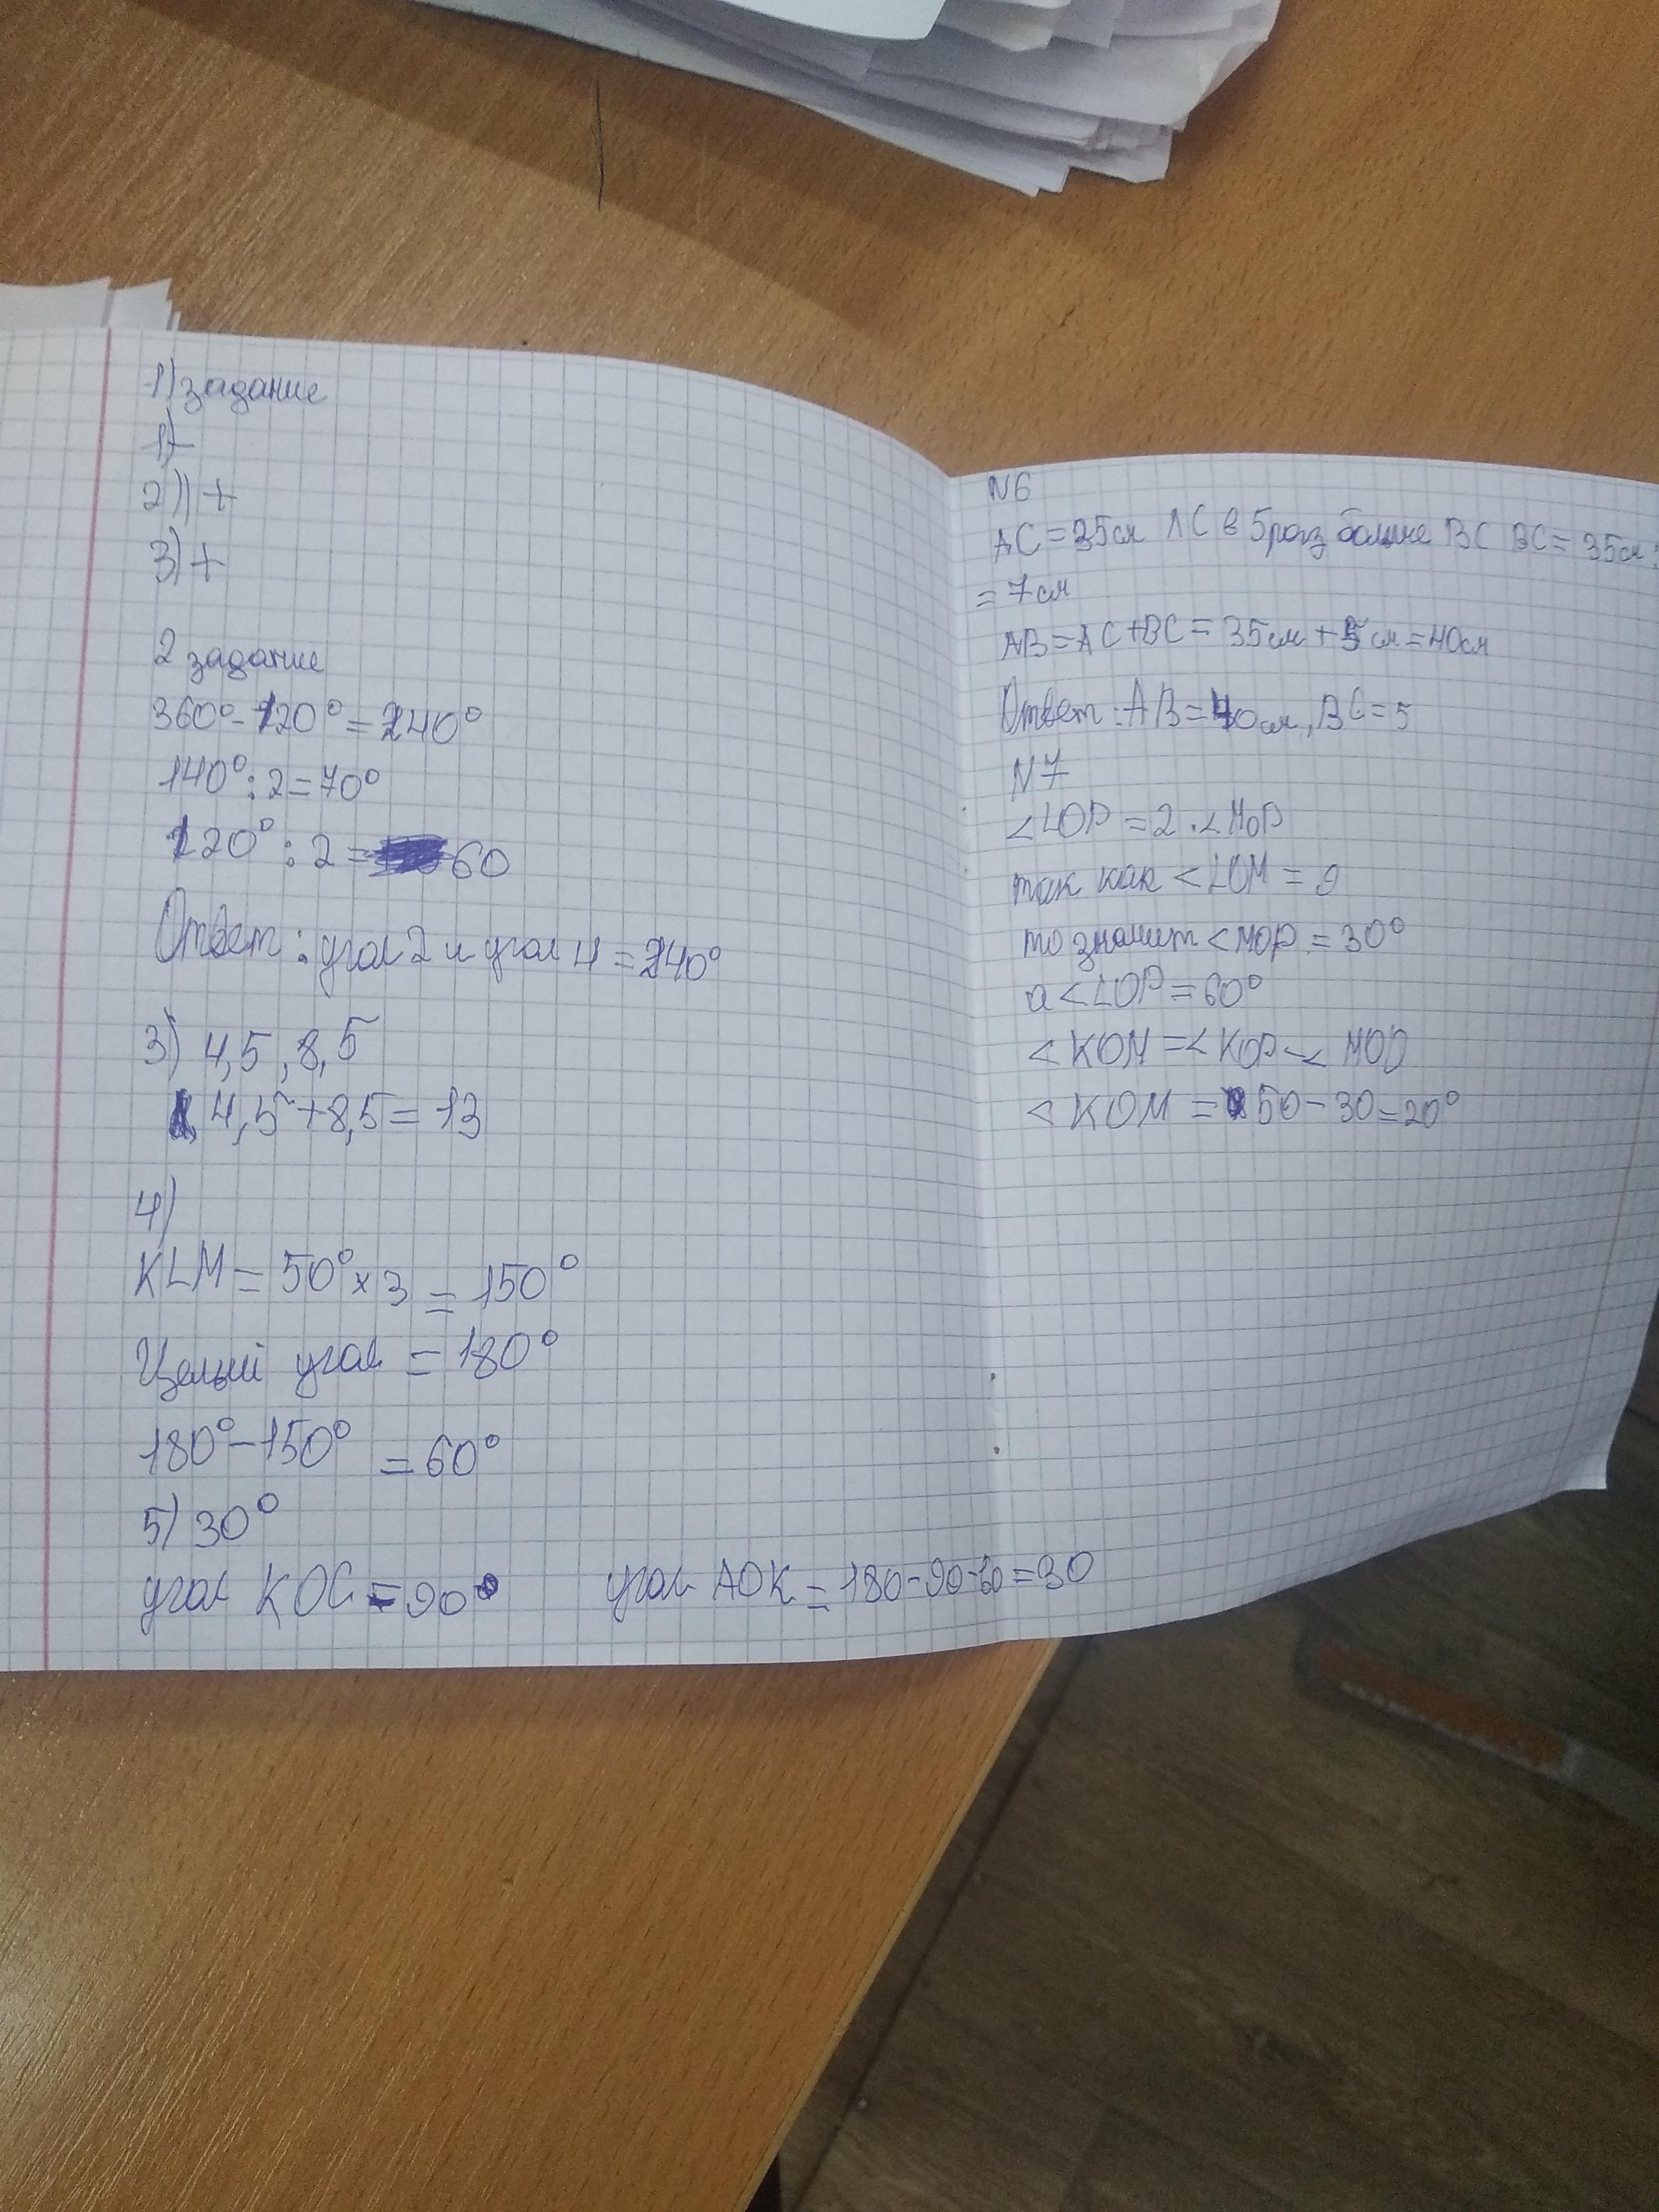 1) задание
1) -
2)) +
3) +
2 задание
360° - 120° = 240°
140° : 2 = 70°
120° : 2 = 60
Ответ: угол 2 и угол 4 = 240°
3) 4,5, 8,5
4,5 + 8,5 = 13
4)
KLM = 50° × 3 = 150°
Целый угол = 180°
180° - 150° = 60°
5) 30°
угол KOC = 90° угол AOK = 180 - 90 - 60 = 30
N6
AC = 35 см AC в 5 раз больше BC BC = 35 см :
= 7 см
AB = AC + BC = 35 см + 5 см = 40 см
Ответ: AB = 40 см, BC = 5
N7
<LOP = 2 · <MOP
так как <LOM = 9
то значит <MOP = 30°
а <LOP = 60°
<KOM = <KOP - < MOP
<KOM = 50 - 30 = 20°